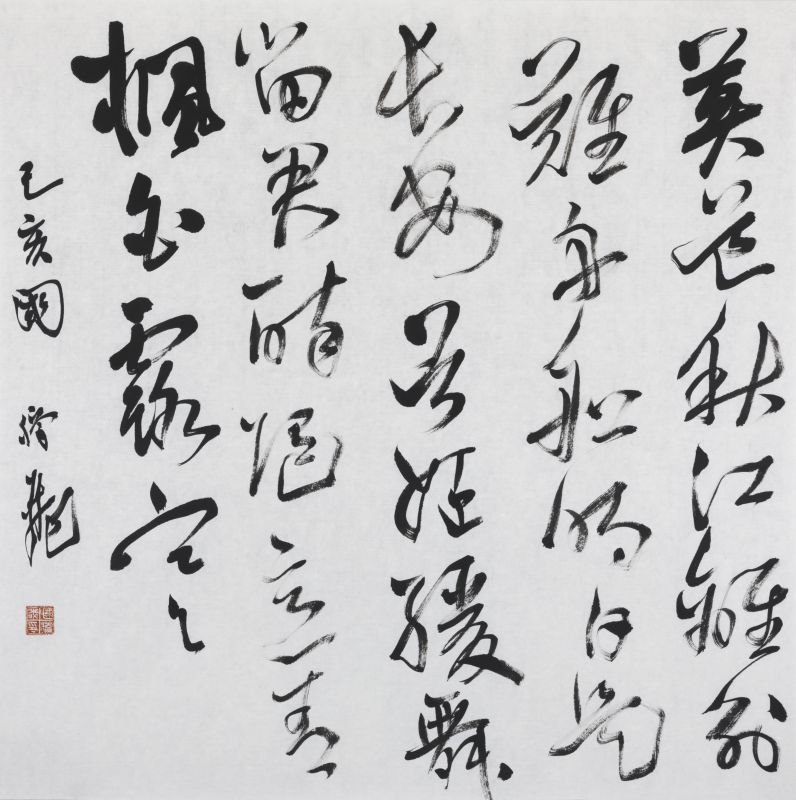 莫道秋江離別
難舟船明日是
長安吳姬緩舞
留君醉隨意青
楓白露寒
己亥國